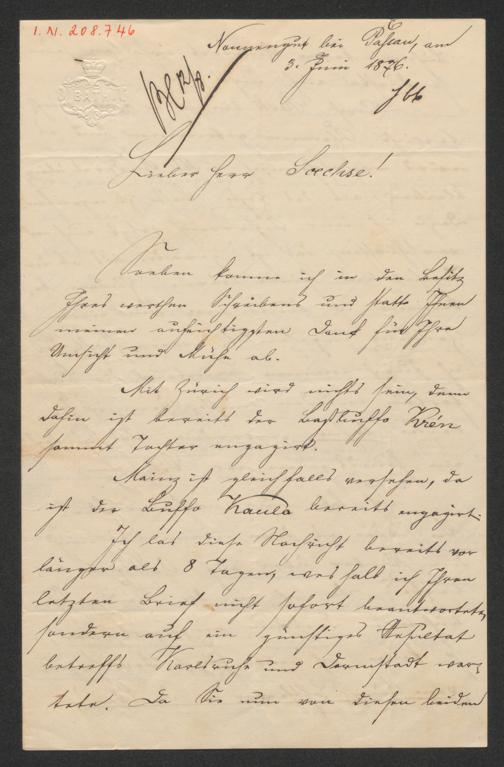 I. N. 208.746
Nonnengut bei Passau, am
3. Juni 1876.
BATH
Lieber Herr Sechse!
Soeben komme ich in den Besitz
Ihres werthen Schreibens und statte Ihnen
meinen aufrichtigsten Dank für Ihre
Umsicht und Mühe ab.
Mit Zürich wird nichts sein, denn
dahin ist bereits der Baßbuffo Krén
sammt Tochter engagirt.
Mainz ist gleichfalls versehen, da
ist der Buffo Kaula bereits engagirt.
Ich las diese Nachricht bereits vor
länger als 8 Tagen, weshalb ich Ihren
letzten Brief nicht sofort beantwortete,
sondern auf ein günstiges Resultat
betreffs Karlsruhe und Darmstadt war-
tete. Da Sie nun von diesen beiden